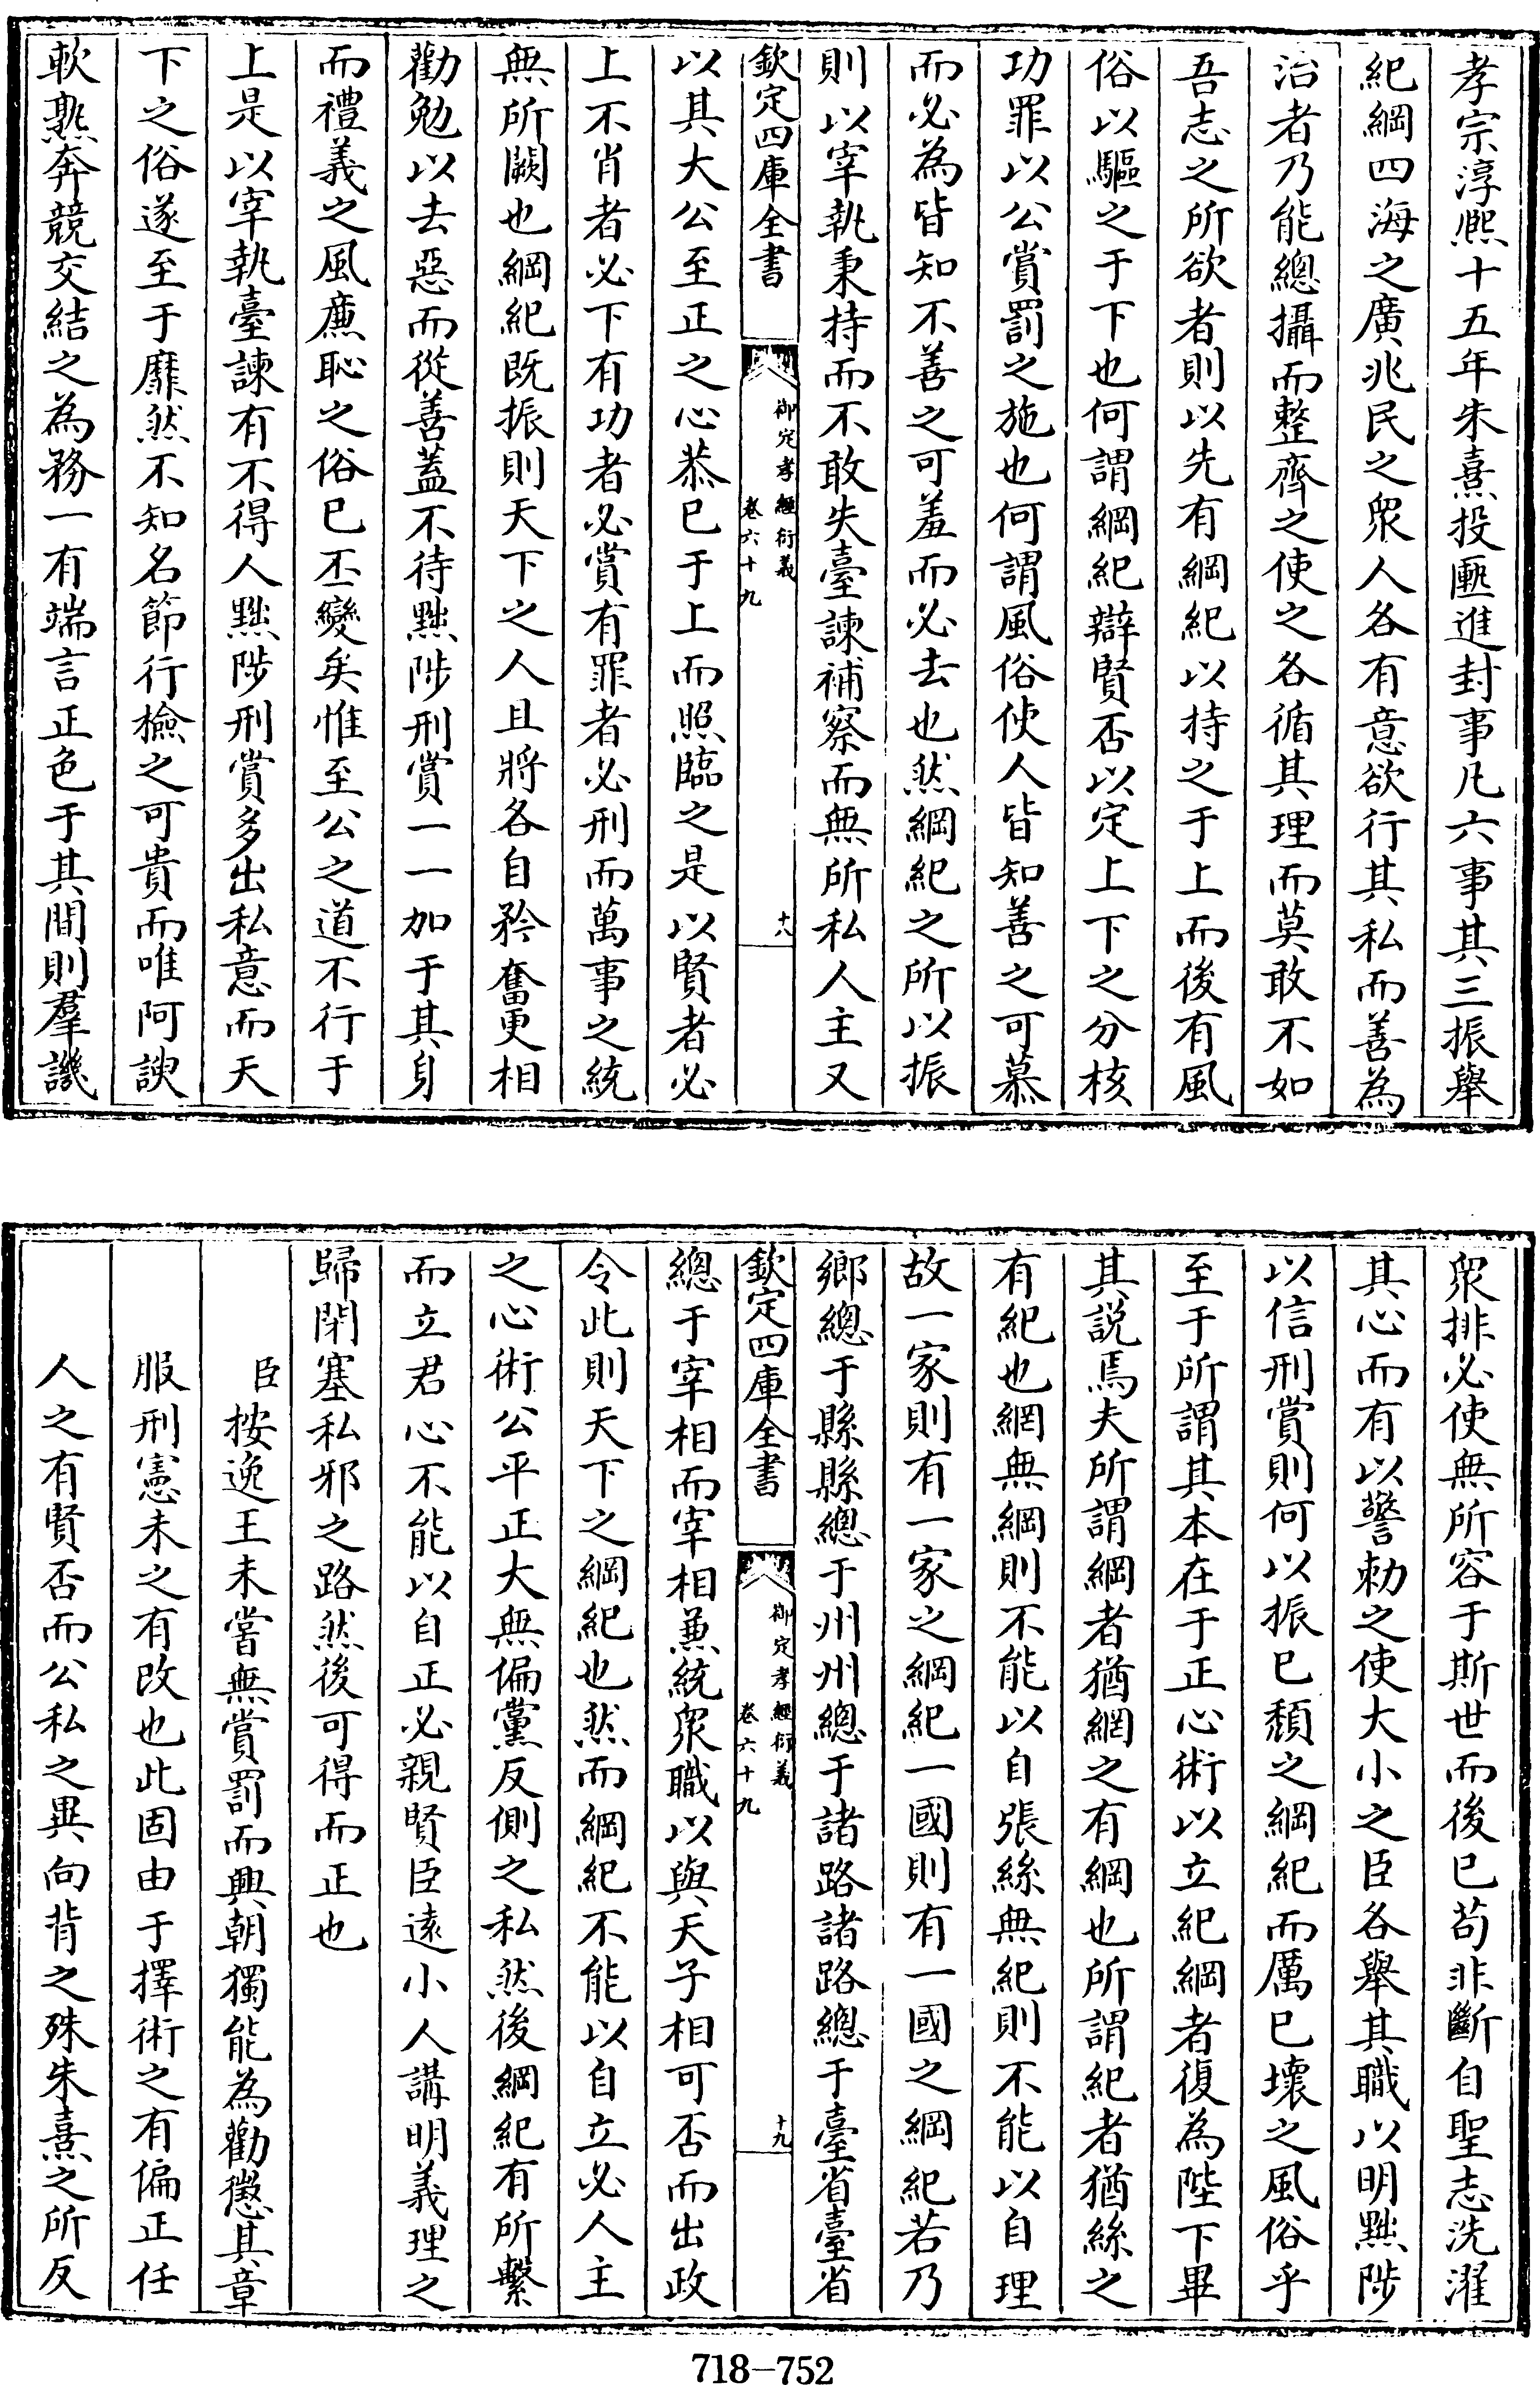 孝宗淳熈十五年朱熹投匭進封事凡六事其三振舉
紀綱四海之廣兆民之衆人各有意欲行其私而善為
治者乃能總攝而整齊之使之各循其理而莫敢不如
吾志之所欲者則以先有綱紀以持之于上而後有風
俗以驅之于下也何謂綱紀辯賢否以定上下之分核
功罪以公賞罰之施也何謂風俗使人皆知善之可慕
而必為皆知不善之可羞而必去也然綱紀之所以振
則以宰執秉持而不敢失臺諫補察而無所私人主又
欽定四庫全書
御定孝經衍義
卷六十九
十八
以其大公至正之心恭已于上而照臨之是以賢者必
上不肖者必下有功者必賞有罪者必刑而萬事之統
無所闕也綱紀既振則天下之人且將各自矜奮更相
勸勉以去惡而從善蓋不待黜陟刑賞一一加于其身
而禮義之風廉恥之俗已丕變矣惟至公之道不行于
上是以宰執臺諫有不得人黜陟刑賞多出私意而天
下之俗遂至于靡然不知名節行檢之可貴而唯阿諛
軟熟奔競交結之為務一有端言正色于其間則羣譏
衆排必使無所容于斯世而後已苟非斷自聖志洗濯
其心而有以警勅之使大小之臣各舉其職以明黜陟
以信刑賞則何以振已頽之綱紀而厲已壞之風俗乎
至于所謂其本在于正心術以立紀綱者復為陛下畢
其說焉夫所謂綱者猶網之有綱也所謂紀者猶絲之
有紀也網無綱則不能以自張絲無紀則不能以自理
故一家則有一家之綱紀一國則有一國之綱紀若乃
鄉總于縣縣總于州州總于諸路諸路總于臺省臺省
欽定四庫全書
御定孝經衍義
卷六十九
十九
總于宰相而宰相兼統衆職以與天子相可否而出政
令此則天下之綱紀也然而綱紀不能以自立必人主
之心術公平正大無偏黨反側之私然後綱紀有所繫
而立君心不能以自正必親賢臣遠小人講明義理之
歸閉塞私邪之路然後可得而正也
臣按逸王未嘗無賞罰而興朝獨能為勸懲其章
服刑憲未之有改也此固由于擇術之有偏正任
人之有賢否而公私之異向背之殊朱熹之所反
718-752